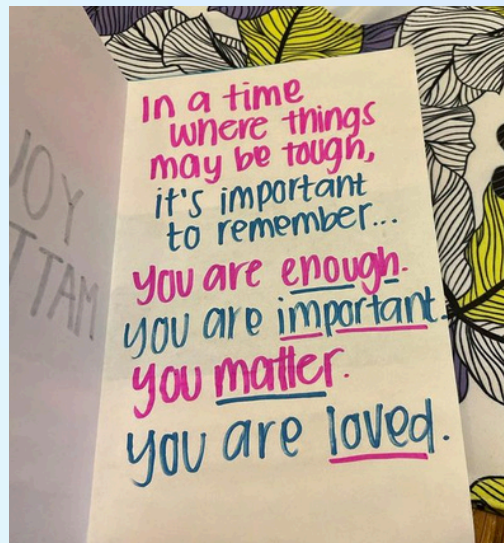 In a time
where things
may be tough,
it's important
to remember...
you are enough.
you are important.
you matter.
you are loved.